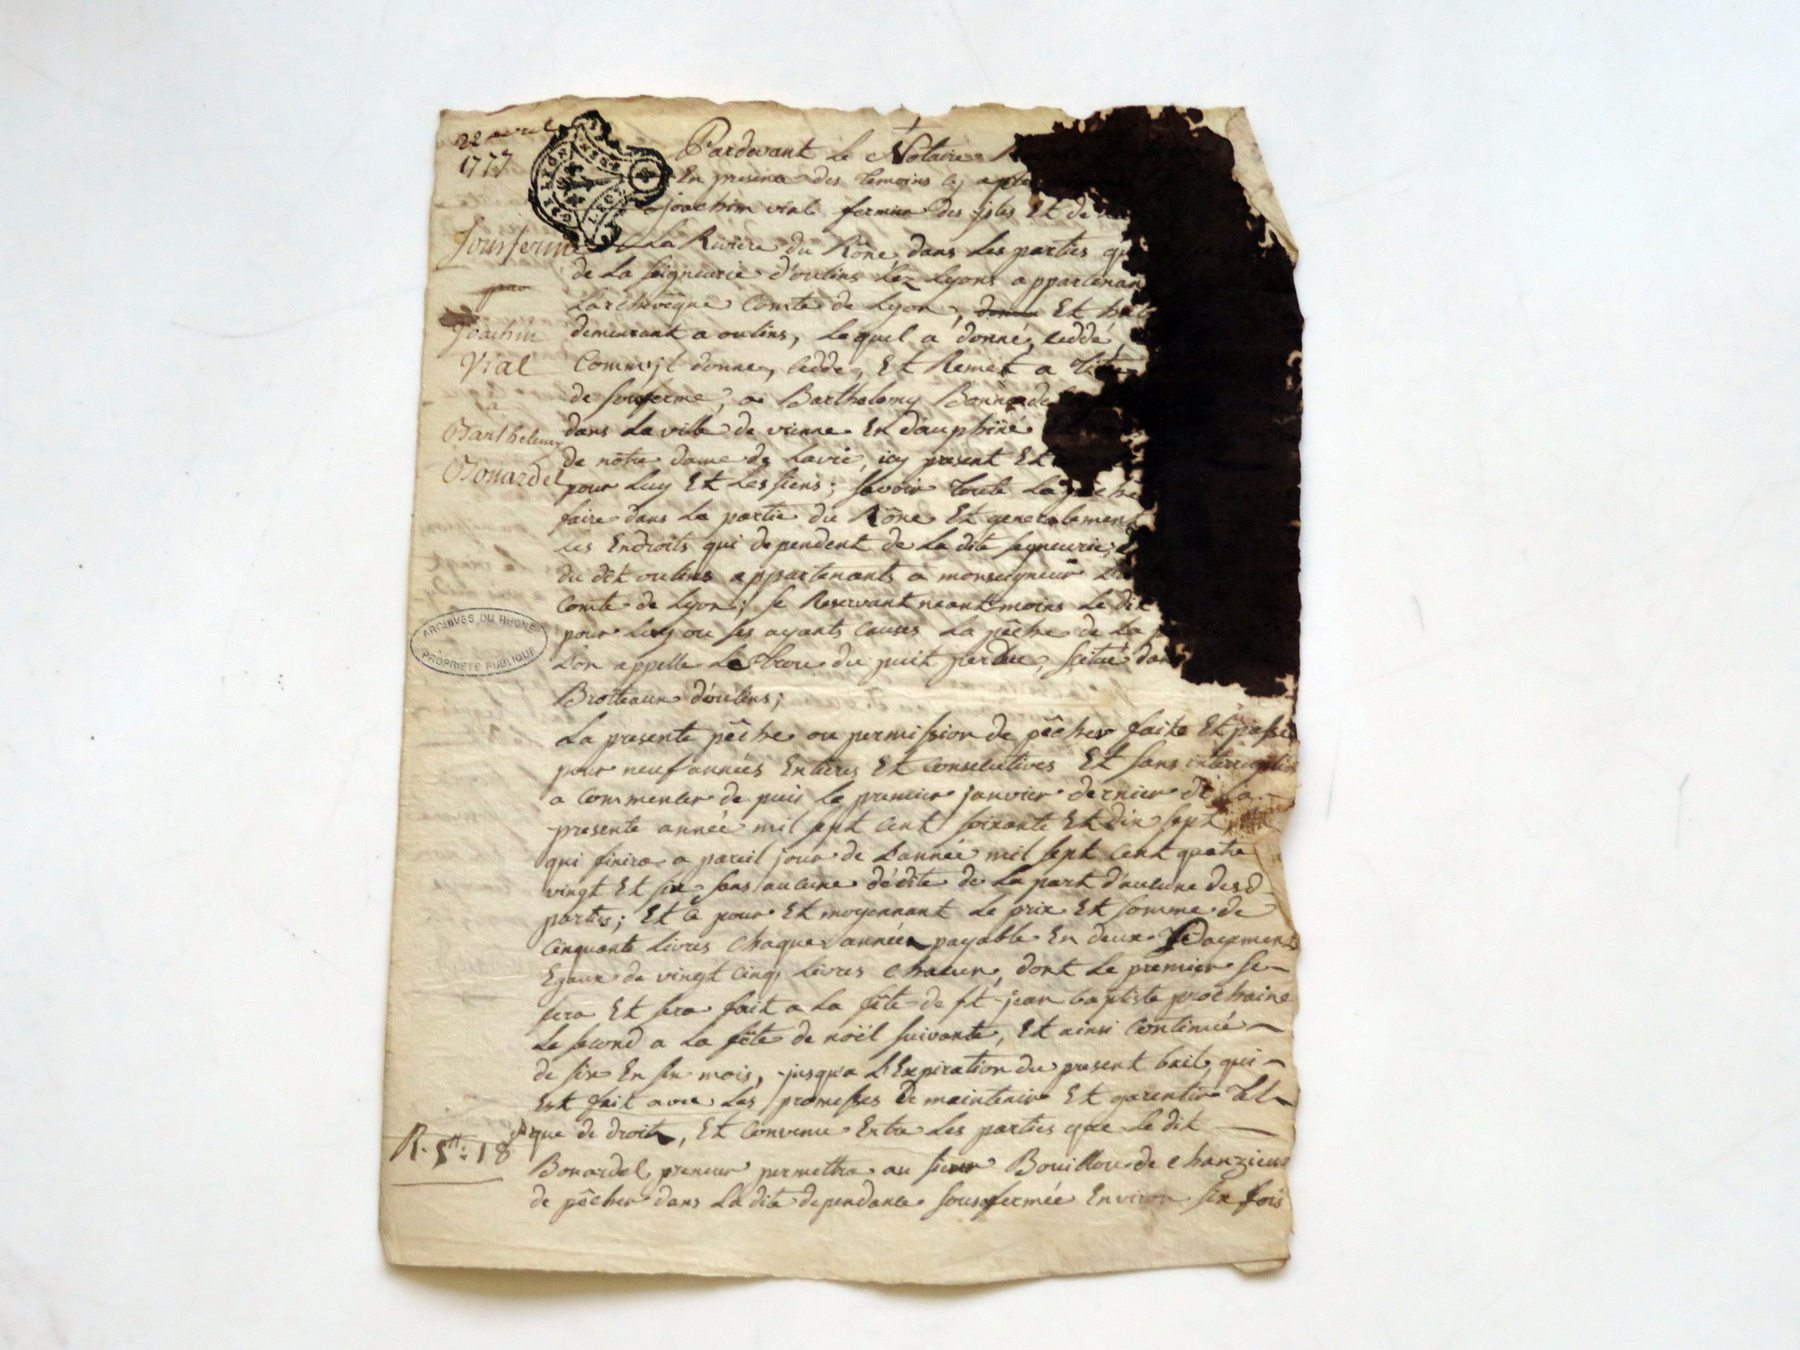 22 avril
1777
GN. LYON
Sousferme
par
Joachin
Vial
a
Barthelemy
Bonardel
ARCHIVES DU RHONE
PROPRIETE PUBLIQUE
R. 5ᵗᵗ: 18ˢ
Pardevant Le Notaire
En presence des temoins cy apres
joachim vial fermier des jsles Et de
La Riviere du Rône, dans Les parties qu
de La seigneurie d'oulins Lez Lyons appartenan
Larchevêque Comte de Lyon, Et
demeurant a oulins, Lequel a donné, ceddé,
Comm'jl donne, cedde, Et Remet a Titre
de souferme, a Barthelemy Bonnardel
dans La ville de vienne En dauphiné
de nôtre dame de Lavie, icy present Et
pour Luy Et Les siens; savoir Toute La pêche
faire dans La partie du Rône Et generalement
Les Endroits qui dependent de La dite segneurie;
du dit oulins appartenants a monseigneur L
Comte de Lyon; se Reservant neantmoins Le dit
pour Luy ou ses ayants Causes La pêche de La
L'on appelle Le Trou du puit perdu, scitué dan
Brotteaux d'oulins;
La presente pêche ou permission de pêcher faite Et passée
pour neuf années Entieres Et Consecutives Et sans interruption
a Commencer de puis Le premier janvier dernier de La
presente année mil sept Cent soixante Et dix sept,
qui finira a pareil jour de L'année mil sept Cent quatre
vingt Et six, sans aucune dédite de La part d'aucune desd
parties; Et Ce pour Et moyennant Le prix Et somme de
Cinquante Livres Chaque année payable En deux Payement
Egaux de vingt Cinq Livres Chacun, dont Le premier se
fera Et sera fait a La fête de st jean baptiste prochaine
Le second a La fête de noël suivante, Et ainsi Continué
de six En six mois, jusqu'a L'Expiration du present bail, qui
Est fait avec Les promesses de maintenir Et garentir Tel
que de droit, Et Convenu Entre Les parties que Le dit
Bonardel preneur permettra au sieur Bouillou de Chanzieux
de pêcher dans La dite dependance sousfermée Environ six fois